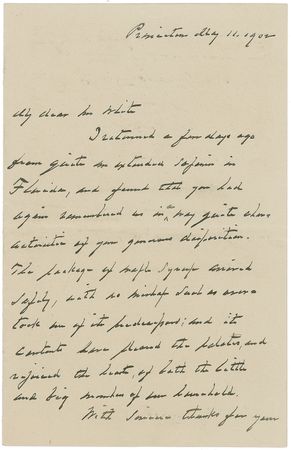 Princeton May 11, 1902
My dear Mr White
I returned a few days ago
from quite an extended sojourn in
Florida, and found that you had
again remembered us in a way quite char-
acteristic of your generous disposition.
The package of maple syrup arrived
safely, with no mishap such as over-
took one of its predecessors; and its
contents have pleased the palates, and
rejoiced the hearts, of both the little
and big members of our household.
With sincere thanks for your